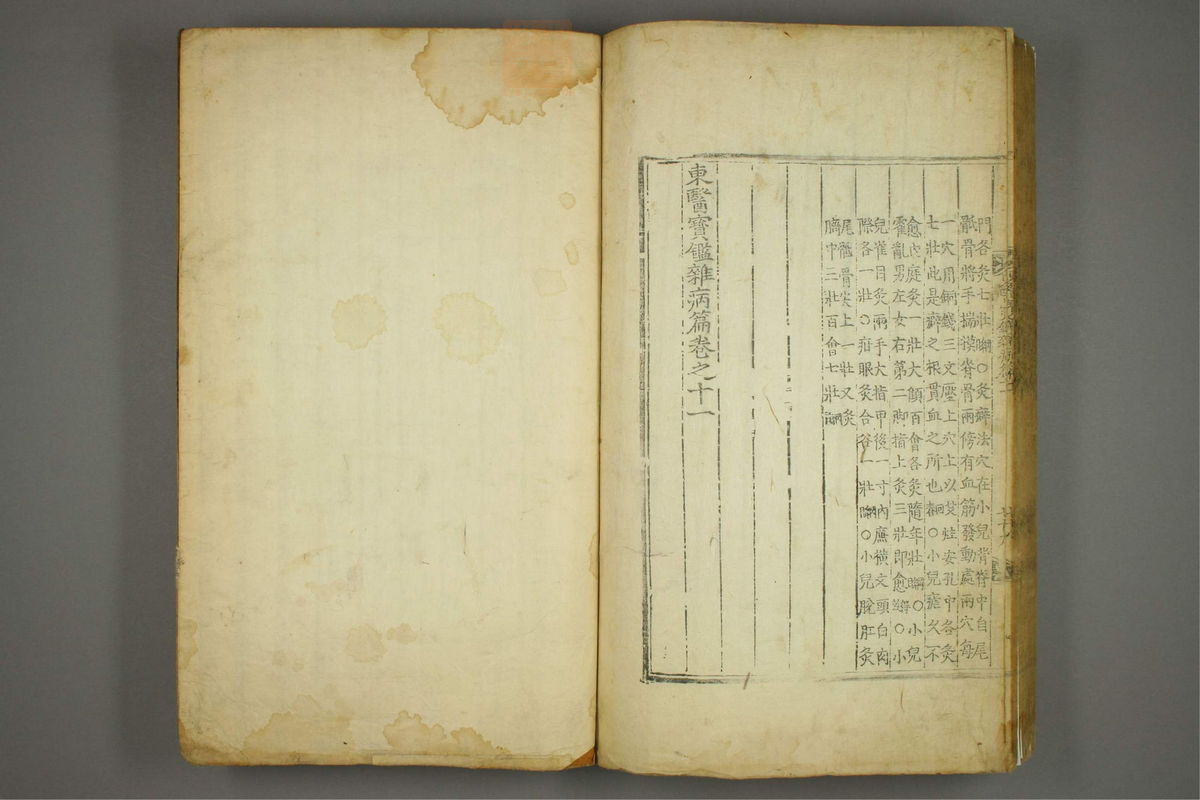 門各灸七壯綱○灸癖法穴在小兒背脊中自尾
骶骨將手揣摸脊骨兩傍有血筋發動處兩穴每
一穴用銅錢三文壓上穴上以艾炷安孔中各灸
七壯此是癖之根貫血之所也○小兒瘧久不
愈內庭灸一壯大顀百會各灸隨年壯綱○小兒
霍亂男左女右第二脚指上灸三壯即愈○小
兒雀目灸兩手大指甲後一寸內廉橫文頭白肉
際各一壯○疳眼灸合谷一壯綱○小兒脫肛灸
尾骶骨尖上一壯又灸
臍中三壯百會七壯綱
東醫寶鑑雜病篇卷之十一